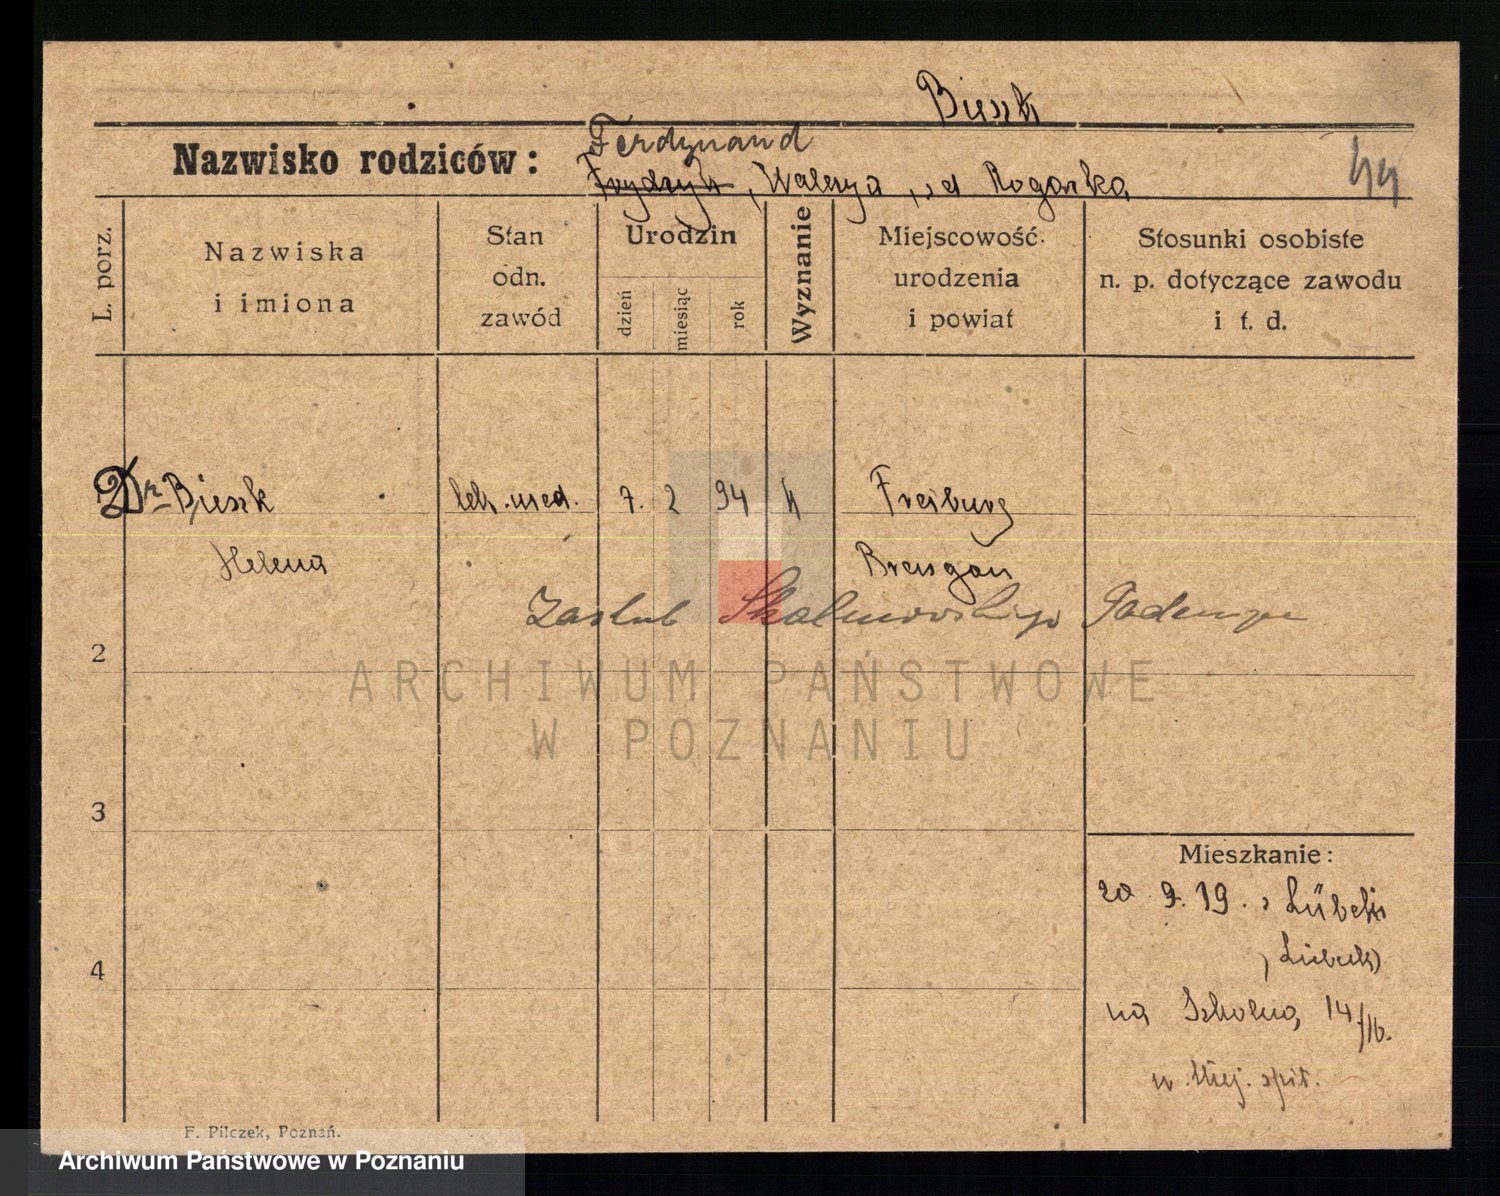 Biesk
Nazwisko rodziców:
Ferdynand
Frydryk, Walerya, z d Rogaska
44
L. porz.
Nazwiska
i imiona
Stan
odn.
zawód
Urodzin
dzień
miesiąc
rok
Wyznanie
Miejscowość
urodzenia
i powiat
Stosunki osobiste
n. p. dotyczące zawodu
i t. d.
Dr Biesk lek. med. 7. 2 94 k Freiburg
Helena Breisgau
Zaślub Skalmowskiego
2
ARCHIWUM PAŃSTWOWE
W POZNANIU
3
Mieszkanie:
20. 9. 19. z Lübeki
(Liebeck)
4
na Szkolną 14/16.
w Miej. szpit.
F. Pilczek, Poznań.
Archiwum Państwowe w Poznaniu